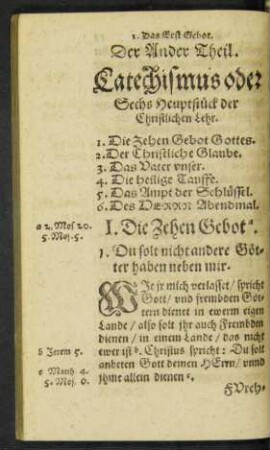 1. Das Erst Gebot.
Der Ander Theil.
Catechismus oder
Sechs Heuptstück der
Christlichen Lehr.
1. Die Zehen Gebot Gottes.
2. Der Christliche Glaube.
3. Das Vater vnser.
4. Die heilige Tauffe.
5. Das Ampt der Schlüssel.
6. Des HERRN Abendmal.
a 2. Mos 20.
5. Mos. 5.
I. Die Zehen Gebot a.
1. Du solt nicht andere Göt-
ter haben neben mir.
WIe jr mich verlasset / spricht
Gott / vnd frembden Göt-
tern dienet in ewerm eigen
Lande / also solt jhr auch Frembden
dienen / in einem Lande / das nicht
b Jerem 5.
ewer ist b. Christus spricht: Du solt
anbeten Gott deinen HErrn / vnnd
c Matth 4.
5. Mos. 6.
jhme allein dienen c.
Fürch-